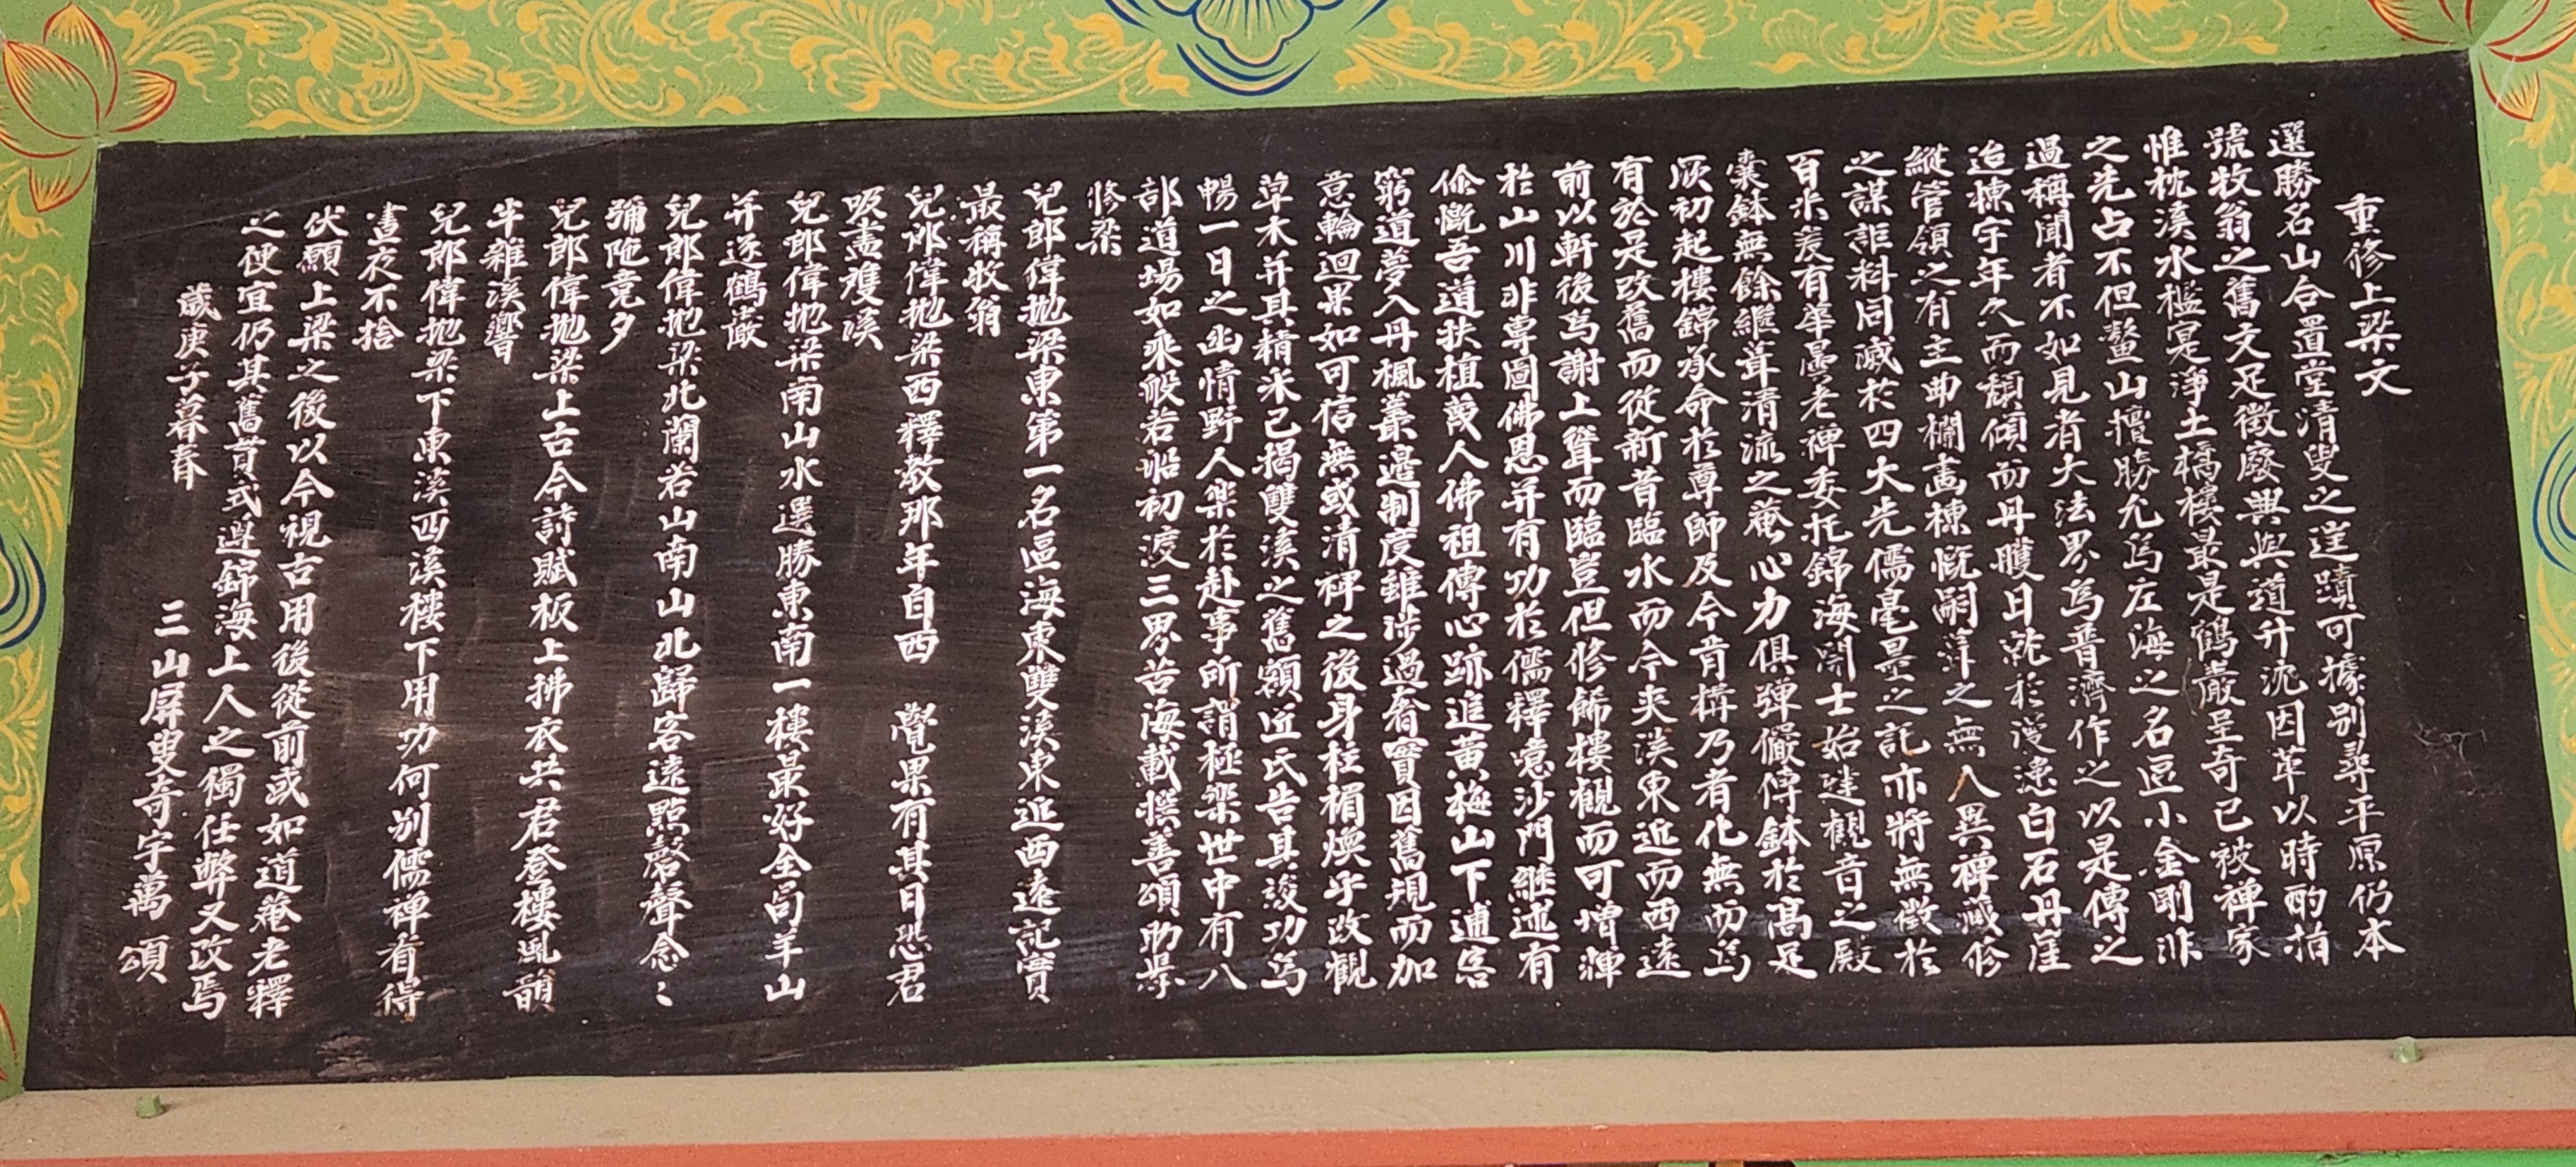 重修上梁文
選勝名山合置堂清叟之遑蹟可據別尋平原仍本
號牧翁之舊文足徵廢興與道升沈因革以時酌拍
惟枕溪水檻寔淨土橋樓最是鶴巖呈奇已被禪家
之先占不但鰲山擅勝允爲左海之名區小金剛非
過稱聞者不如見者大法界爲普濟作之以是傳之
迨棟宇年久而頹傾而丹雘日就於漫漶白石丹崖
縱管領之有主曲欄畵棟慨嗣葺之無人異禪藏修
之謀詎料同滅於四大先儒毫墨之託亦將無徵於
百年爰有華曇老禪委托錦海開士始建觀音之殿
囊鉢無餘繼葺清流之菴心力俱彈儼傳鉢於高足
厥初起樓錦承命於尊師及今肯構乃者化無而爲
有於是改舊而從新昔臨水而今夾溪東近而西遠
前以軒後爲謝上聳而臨豈但修餙樓觀而可增輝
於山川非專圖佛恩并有功於儒釋噫沙門継述有
俗慨吾道扶植蔑人佛祖傳心跡進黃梅山下逋客
窮道夢入丹楓叢邊制度雖涉過奢實因舊規而加
意輪迴果如可信無或清禪之後身柱楣煥乎改觀
草木并其精氶已揭雙溪之舊額近氏告其浚功爲
暢一日之幽情野人樂於赴事所謂極樂世中有八
部道塲如乘般若船初渡三界苦海載撰善頌助擧
修梁
兒郎偉抛梁東第一名區海東雙溪東近西遠記實
最稱牧翁
兒郎偉抛梁西釋教那年自西 覺果有其日恐君
吸盡雙溪
兒郎偉抛梁南山水選勝東南一樓最好全局羊山
并逐鶴巖
兒郎偉抛梁北蘭若山南山北歸客遠點磬聲念〻
彌陁竟夕
兒郎偉抛梁上古今詩賦板上拂衣共君登樓風韻
半雜溪響
兒郎偉抛梁下東溪西溪樓下用功何別儒禪看得
晝夜不捨
伏願上梁之後以今視古用後從前或如道菴老釋
之便宜仍其舊貫式遵錦海上人之獨任弊又改焉
歲庚子暮春
三山屏叟奇宇萬 頌